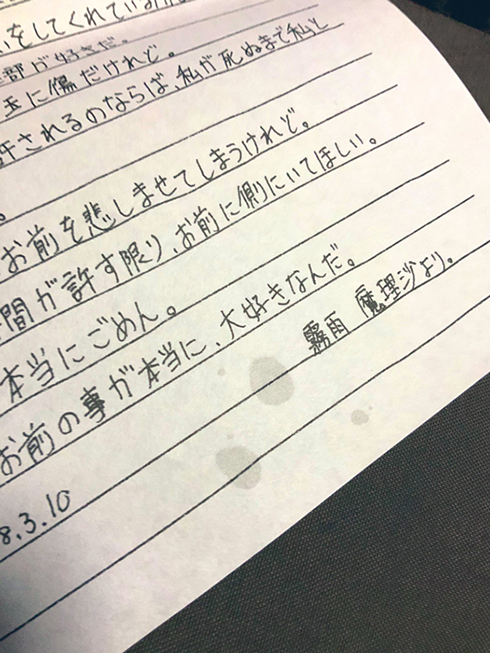 をしてくれている
部が好きだ。
玉に傷だけれど。
許されるのならば、私が死ぬまで私と
。
お前を悲しませてしまうけれど。
間が許す限り、お前に側にいてほしい。
本当にごめん。
お前の事が本当に、大好きなんだ。
霧雨 魔理沙より。
8.3.10